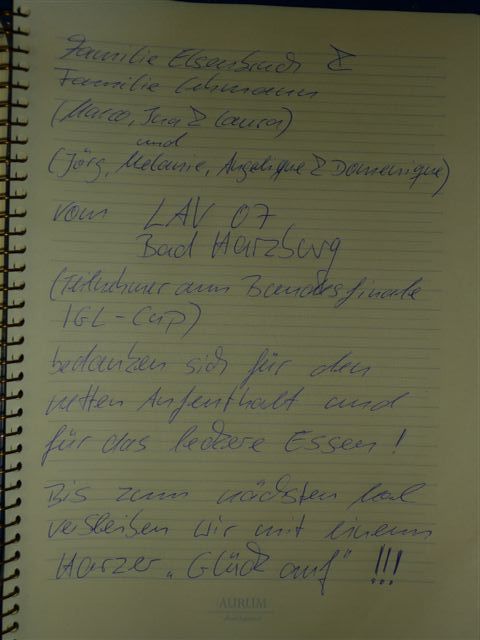 Familie Elsenbruch &
Familie Lehmann
(Marco, Ina & Laura)
und
(Jörg, Melanie, Angelique & Domenique)
vom LAV 07
Bad Harzburg
(Teilnehmer am Bundesfinale
IGL-Cup)
bedanken sich für den
netten Aufenthalt und
für das leckere Essen!
Bis zum nächsten Mal
verbleiben wir mit einem
Harzer „Glück auf" !!!
AURUM